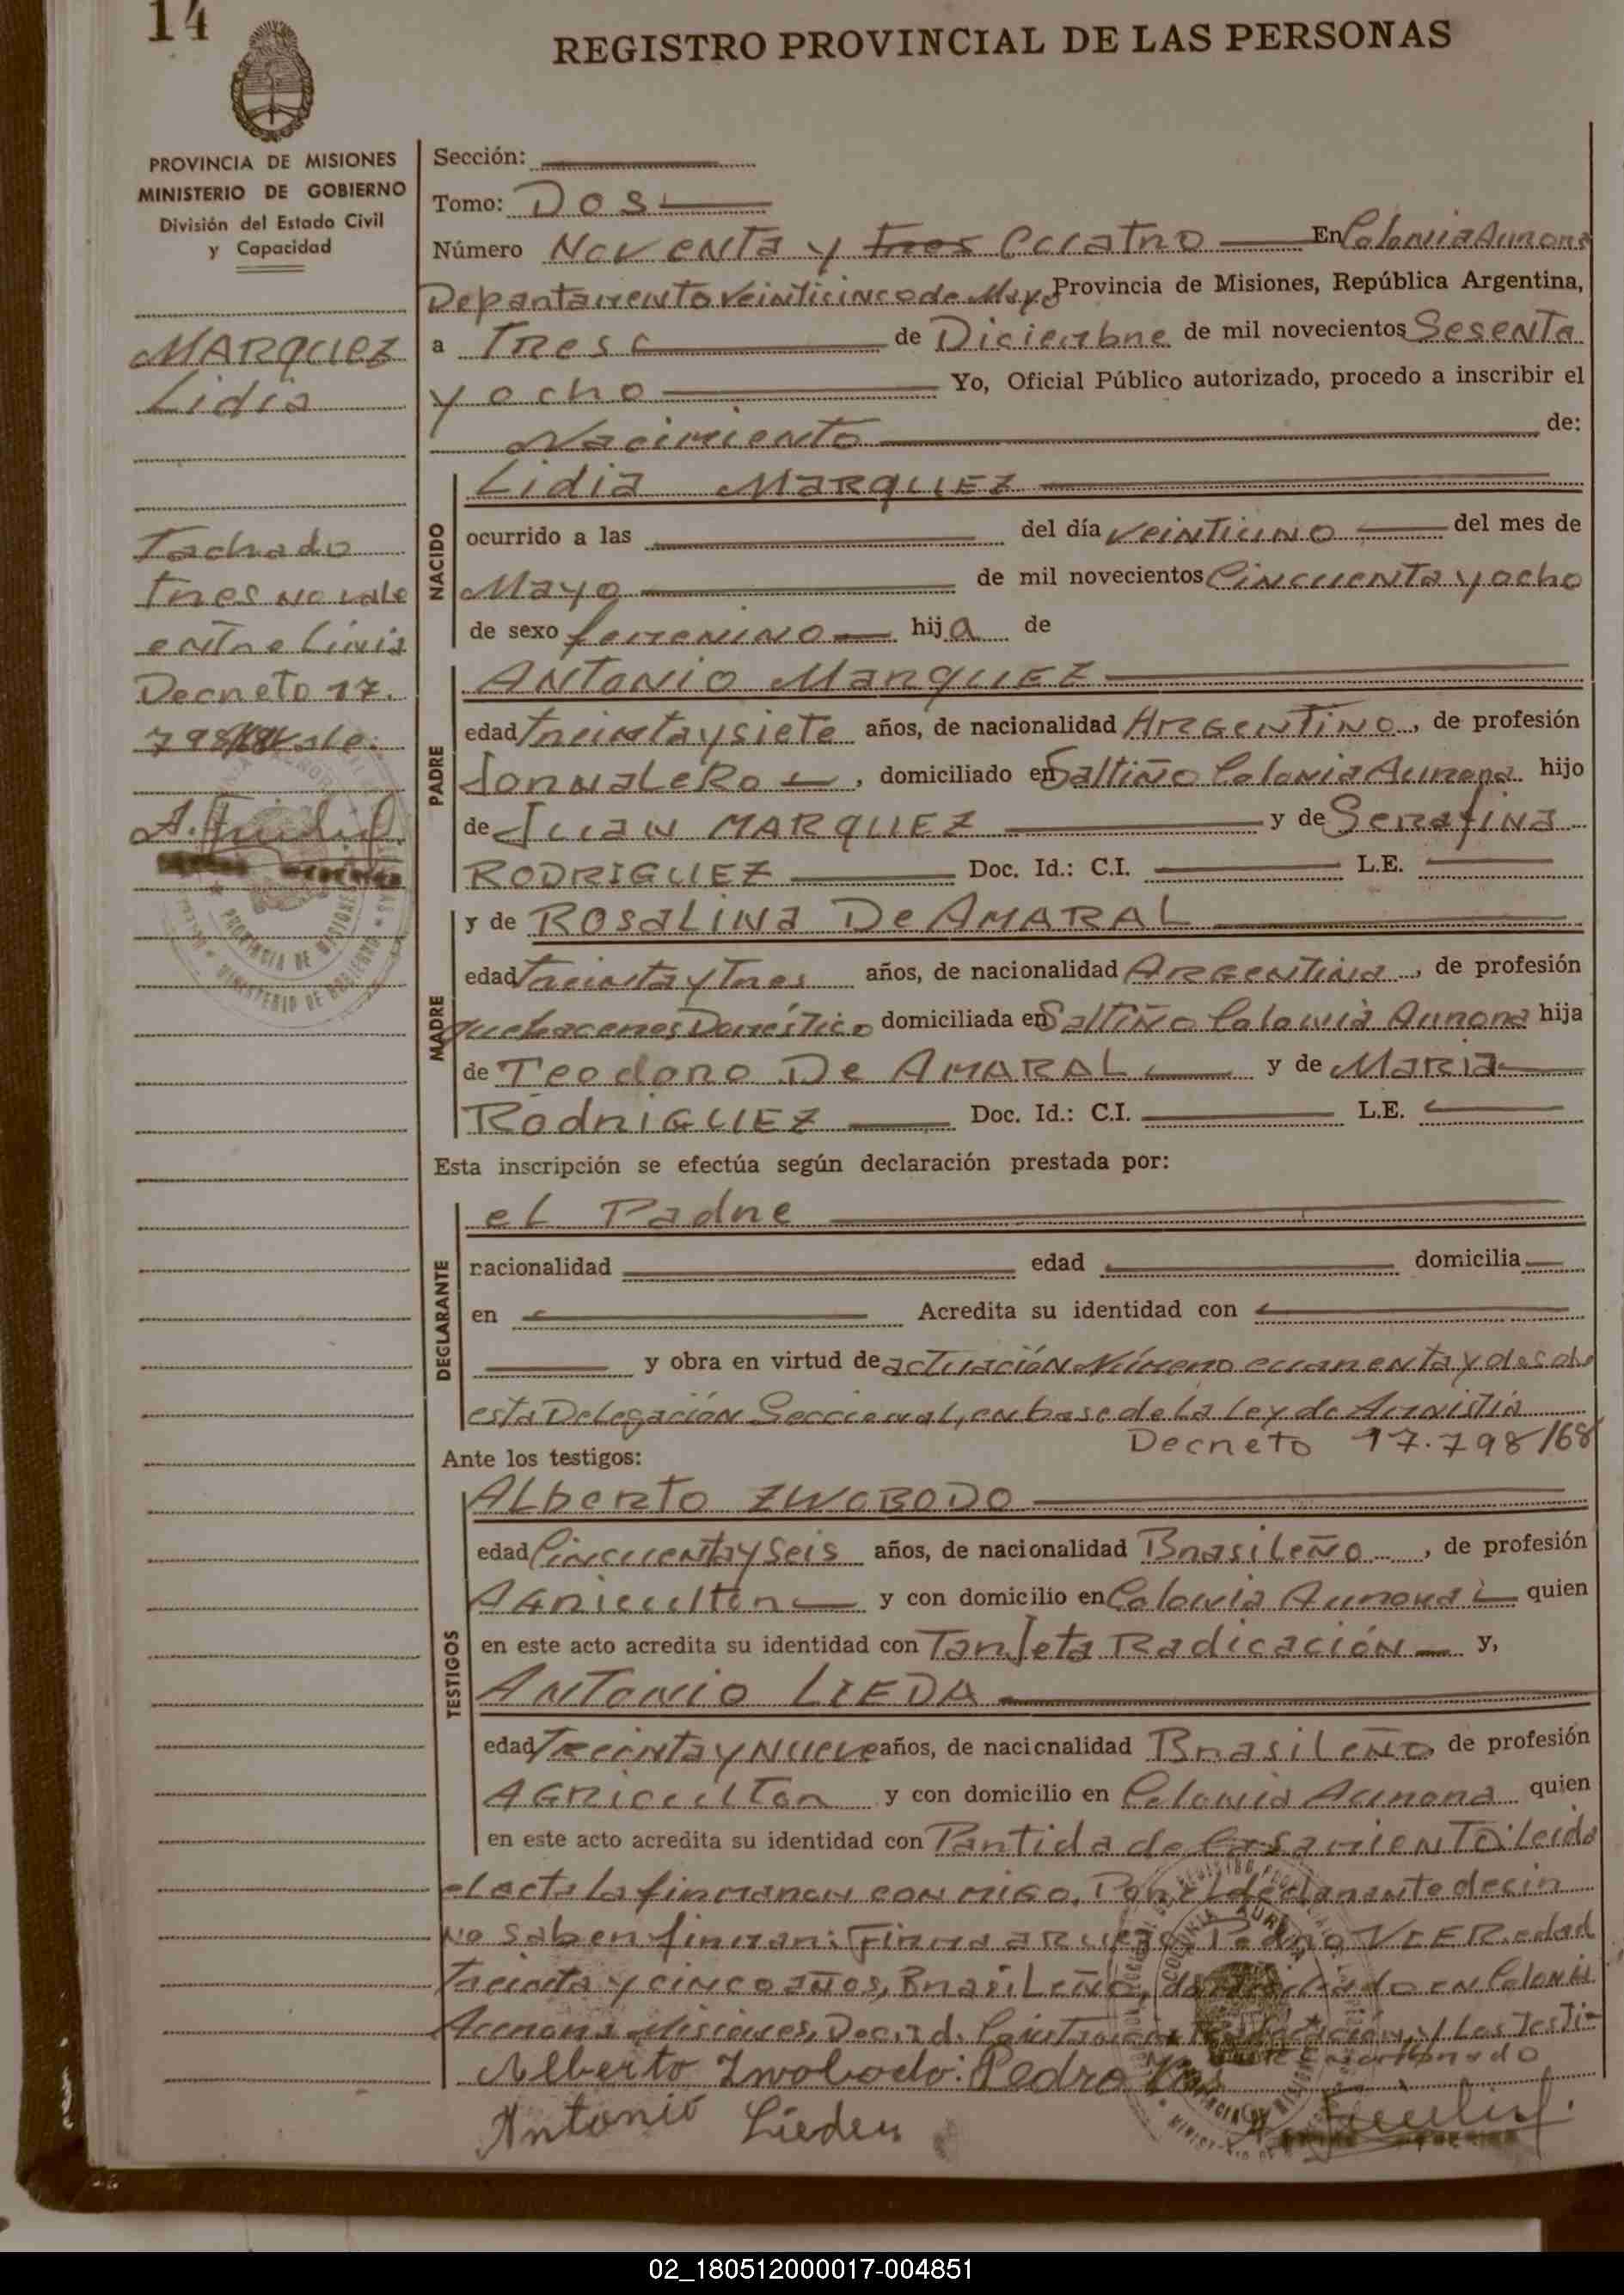 14
REGISTRO PROVINCIAL DE LAS PERSONAS
PROVINCIA DE MISIONES
MINISTERIO DE GOBIERNO
División del Estado Civil
y Capacidad
MARQUEZ
Lidia
Tachado
tres no vale
entre linia
Decreto 17.
798/68 vale:
Sección:
Tomo: DOS
Número Noventa y tres Cuatro En Colonia Aurora
Departamento Veinticinco de Mayo Provincia de Misiones, República Argentina,
a Tres de Diciembre de mil novecientos Sesenta
y ocho Yo, Oficial Público autorizado, procedo a inscribir el
Nacimiento de:
NACIDO
Lidia MARQUEZ
ocurrido a las del día veintiuno del mes de
Mayo de mil novecientos Cincuenta y ocho
de sexo femenino hija de
PADRE
ANTONIO MarquEZ
edad treinta y siete años, de nacionalidad ARGENTINO, de profesión
Jornalero, domiciliado en Saltiño Colonia Aurora hijo
de Juan MARQUEZ y de Serafina
RODRIGUEZ Doc. Id.: C.I. L.E.
MADRE
y de ROSALINA De AMARAL
edad treinta y Tres años, de nacionalidad ARGENTINA, de profesión
quehaceres Doméstico domiciliada en Saltiño Colonià Aurora hija
de Teodoro De AMARAL y de MARIA
RodriGUEZ Doc. Id.: C.I. L.E.
Esta inscripción se efectúa según declaración prestada por:
DECLARANTE
el Padre
nacionalidad edad domicilia
en Acredita su identidad con
y obra en virtud de actuación Número cuarenta y dos de
esta Delegación Seccional, en base de la Ley de Amnistia
Decreto 17.798/68
Ante los testigos:
TESTIGOS
Alberto ZWOBODO
edad Cincuenta y seis años, de nacionalidad Brasileño, de profesión
Agricultor y con domicilio en Colonia Aurora quien
en este acto acredita su identidad con Tarjeta Radicación y,
ANTONIO LIEDA
edad Treinta y Nueve años, de nacionalidad Brasileño de profesión
AGRicultor y con domicilio en Colonia Aurora quien
en este acto acredita su identidad con Partida de Casamiento: leida
el acta la firmaran con migo, Por el declarante decir
no saber firmar: Firma a Ruego Pedro edad
Treinta y cinco años, Brasileño, domiciliado en Colonia
Aurora Misiones, Doc. id. Radicación, y los Testi-
Alberto Zwobodo: Pedro
Antonio Lieden
02_180512000017-004851